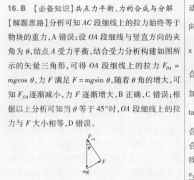 16. B 【必备知识】共点力平衡、力的合成与分解
【解题思路】分析可知 AC 段细线上的拉力始终等于
物块的重力,A 错误;设 OA 段细线与竖直方向的夹
角为 θ,结点 A 受力平衡,结合受力分析构建如图所
示的矢量三角形,可得 OA 段细线的拉力 F_OA =
mgcos θ,力 F 满足 F = mgsin θ,随着 θ 角的增大,可
知 F_OA 逐渐减小,力 F 逐渐增大,B 正确,C 错误;根
据以上分析可知当 θ 等于 45°时,OA 段细线上的拉
力与 F 大小相等,D 错误。
F_OA
θ
F
mg